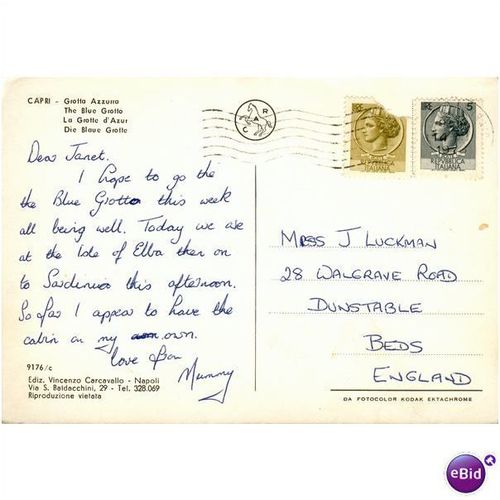 CAPRI - Grotta Azzurra
The Blue Grotto
La Grotte d'Azur
Die Blaue Grotte
Dear Janet.
I hope to go the
the Blue Grotto this week
all being well. Today we are
at the Isle of Elba then on
to Sardinia this afternoon.
So far I appear to have the
cabin on my own.
love from
Mummy
9176/c
Ediz. Vincenzo Carcavallo - Napoli
Via S. Baldacchini, 29 - Tel. 328.069
Riproduzione vietata
CAR
5
REPVBBLICA
ITALIANA
ITALIANA
MISS J LUCKMAN
28 WALGRAVE ROAD
DUNSTABLE
BEDS
ENGLAND
DA FOTOCOLOR KODAK EKTACHROME
eBid